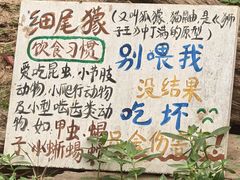 细尾獴
(又叫狐獴 猫鼬 是《狮
子王》中丁满的原型)
饮食习惯
爱吃昆虫、小节肢
动物、小爬行动物
及小型啮齿类动
物,如甲虫、蝎
子、小蜥蜴
别喂我
没结果
吃坏